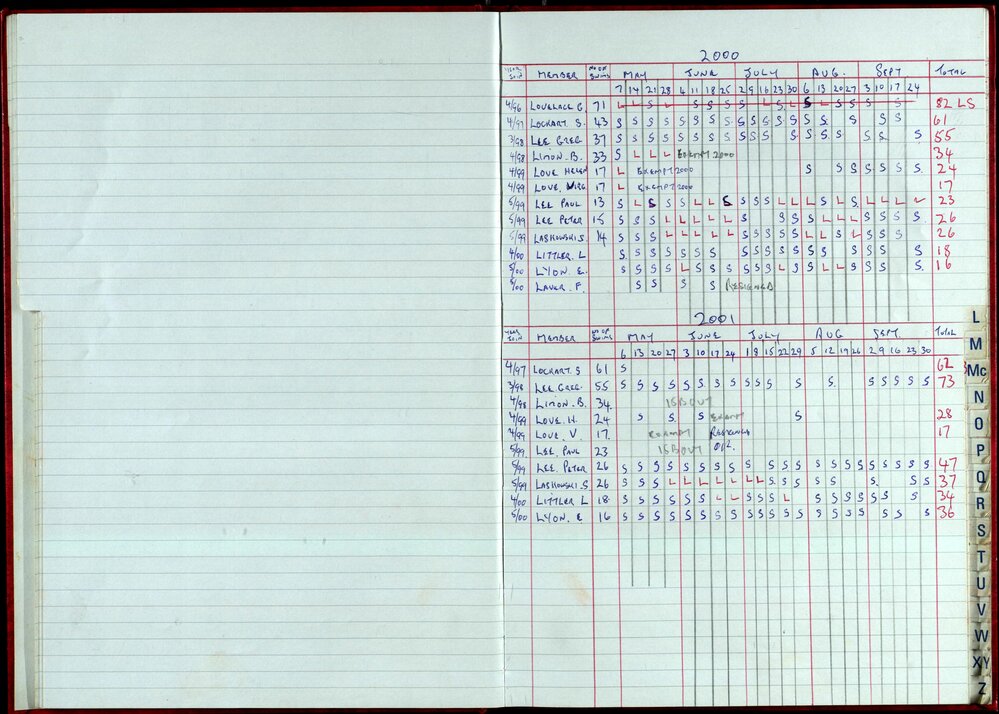 2000
YEAR JOIN MEMBER NO OF SWIMS MAY JUNE JULY AUG. SEPT TOTAL
7 14 21 28 4 11 18 25 2 9 16 23 30 6 13 20 27 3 10 17 24
4/96 LOVELACE G. 71 L L S L S S S S L S L S L S S S 82 LS
4/97 LOCKART. S. 43 S S S S S S S S S S S S S S S S S S 61
3/98 LEE GREG 37 S S S S S S S S S S S S S S S S S S 55
4/98 LIMON. B. 33 S L L L EXEMPT 2000 34
4/99 LOVE HELEN 17 L EXEMPT 2000 S S S S S S S 24
4/99 LOVE. VIRG 17 L EXEMPT 2000 17
5/99 LEE PAUL 13 S L S S S L L S S S S L L L S L S L L L L 23
5/99 LEE PETER 15 S S S L L L L L S S S S L L L S S S S 26
5/99 LASHOWSKI S. 14 S S S L L L L L S S S S S L L S L S S S 26
4/00 LITTLER. L S S S S S S S S S S S S S S S S S S 18
5/00 LYON. E. S S S S L S S S S S S L S S L L S S S S 16
5/00 LAVER. F. S S S S RESIGNED
2001
YEAR JOIN MEMBER NO OF SWIMS MAY JUNE JULY AUG SEPT. TOTAL
6 13 20 27 3 10 17 24 1 8 15 22 29 5 12 19 26 2 9 16 23 30
4/97 LOCKART. S 61 S 62
3/98 LEE GREG. 55 S S S S S S S S S S S S S S S S S S 73
4/98 LIMON. B. 34.
4/99 LOVE. H. 24 S S S EXEMPT S 28
4/99 LOVE. V. 17. EXEMPT RESIGNED 17
5/99 LEE. PAUL 23
5/99 LEE. PETER 26 S S S S S S S S S S S S S S S S S S S S S 47
5/99 LASHOWSKI. S 26 S S S L L L L L L L S S S S S S S S 37
4/00 LITTLER L 18 S S S S S S L L S S S L S S S S S S S 34
5/00 LYON. E 16 S S S S S S S S S S S S S S S S S S S S 36
L
M
Mc
N
O
P
Q
R
S
T
U
V
W
XY
Z